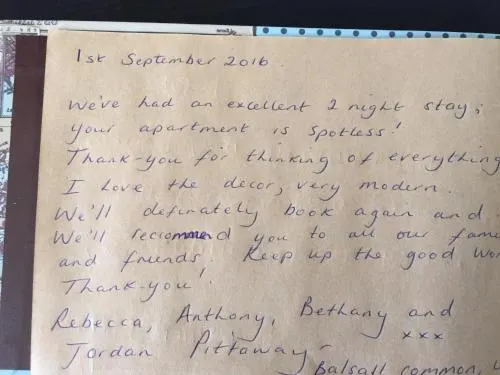 1st September 2016.
We've had an excellent 2 night stay,
your apartment is spotless!
Thank-you for thinking of everything
I love the decor, very modern.
We'll definately book again and
We'll reccommend you to all our fame
and friends. Keep up the good wor
Thank-you!
Rebecca, Anthony, Bethany and
xxx
Jordan Pittaway -
Balsall common,